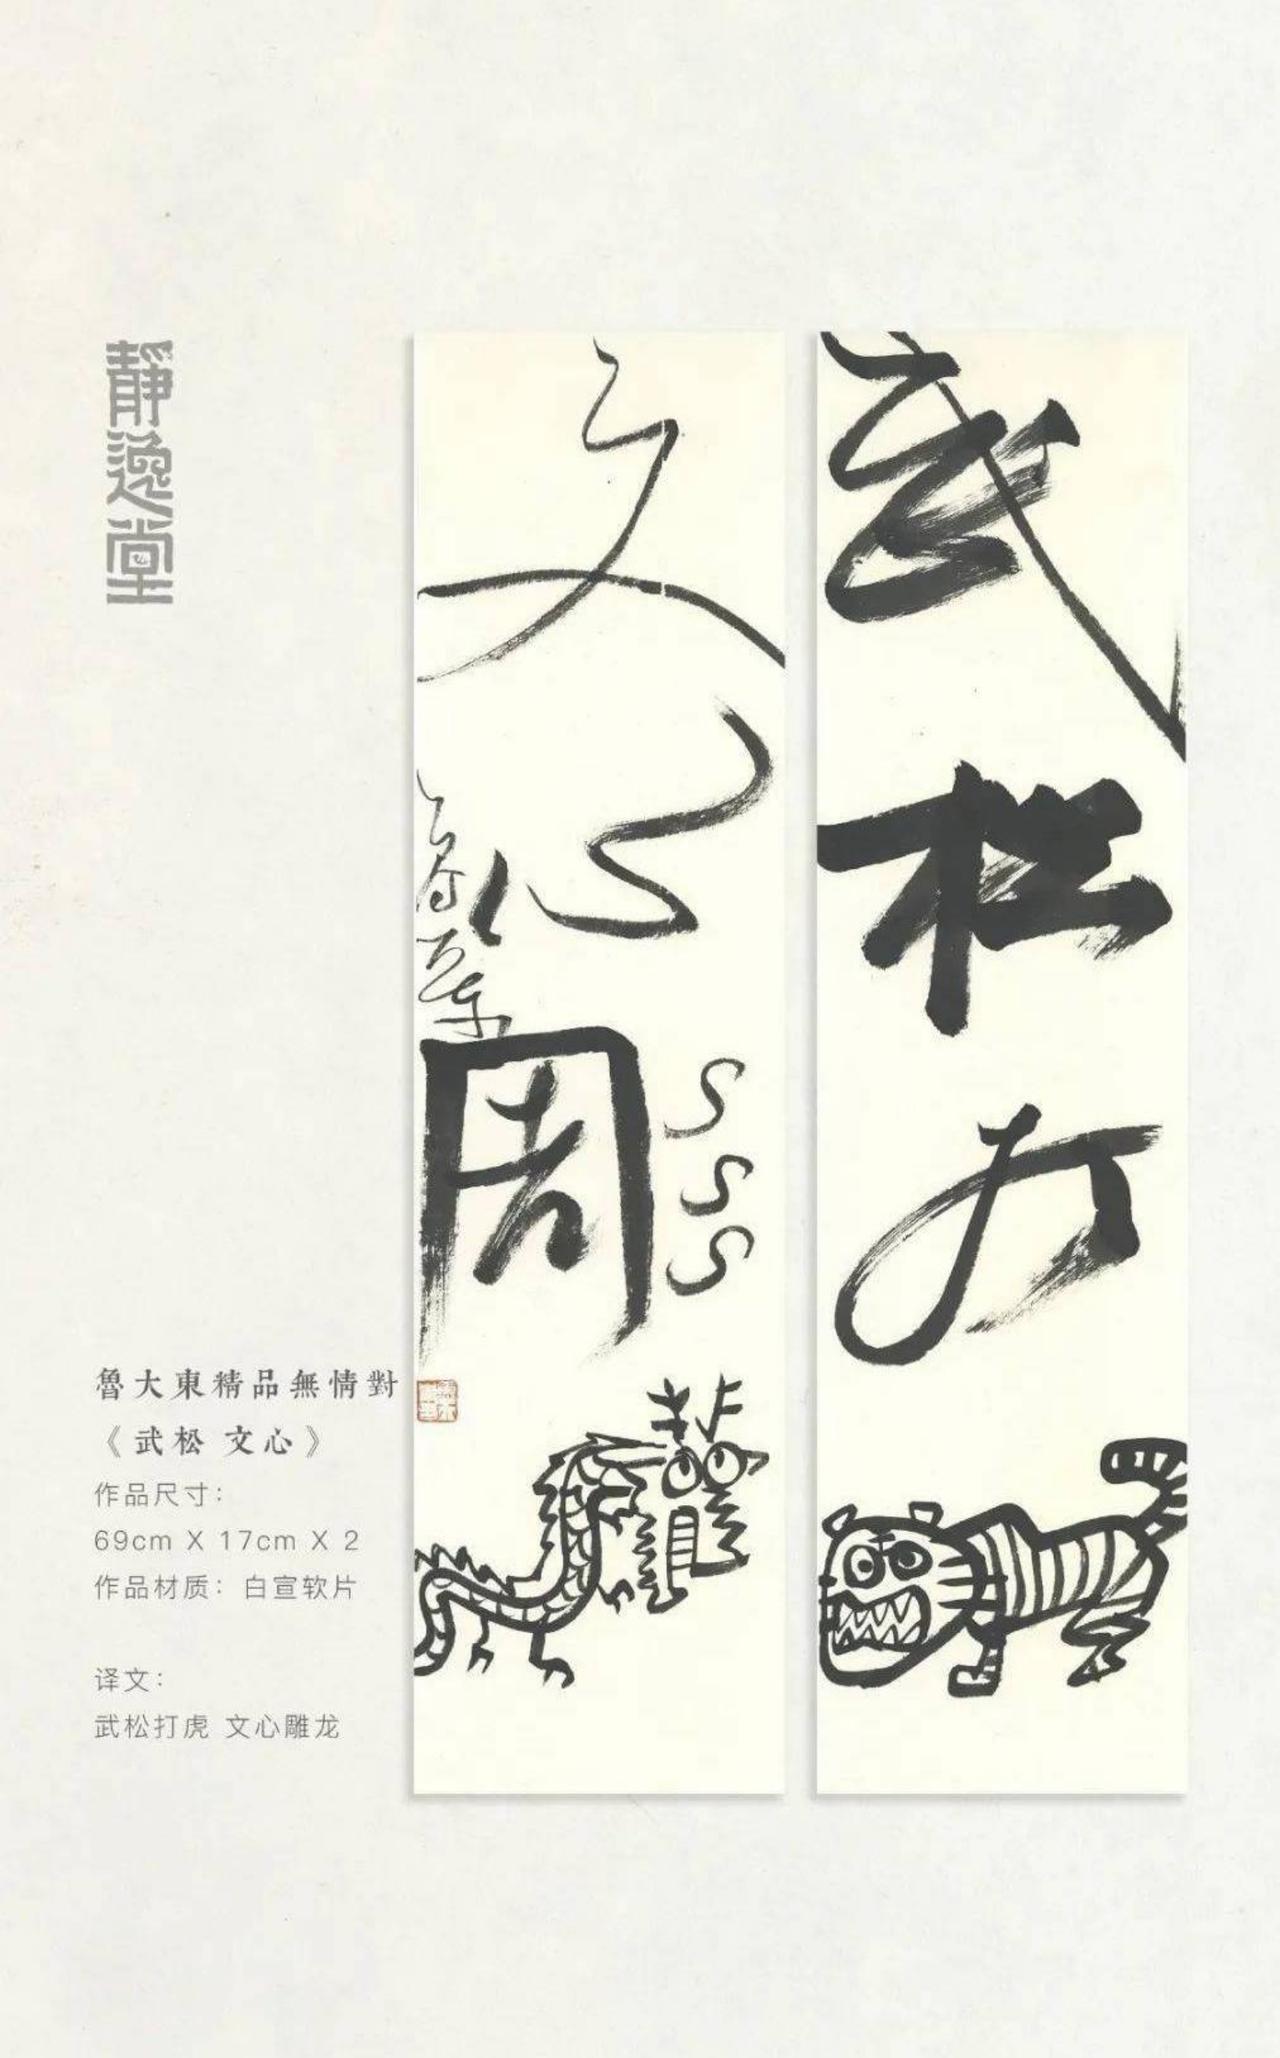 靜逸堂
武松打
文心周彡
魯大東精品無情對
《武松 文心》
作品尺寸：
69cm X 17cm X 2
作品材质：白宣软片
译文：
武松打虎 文心雕龙